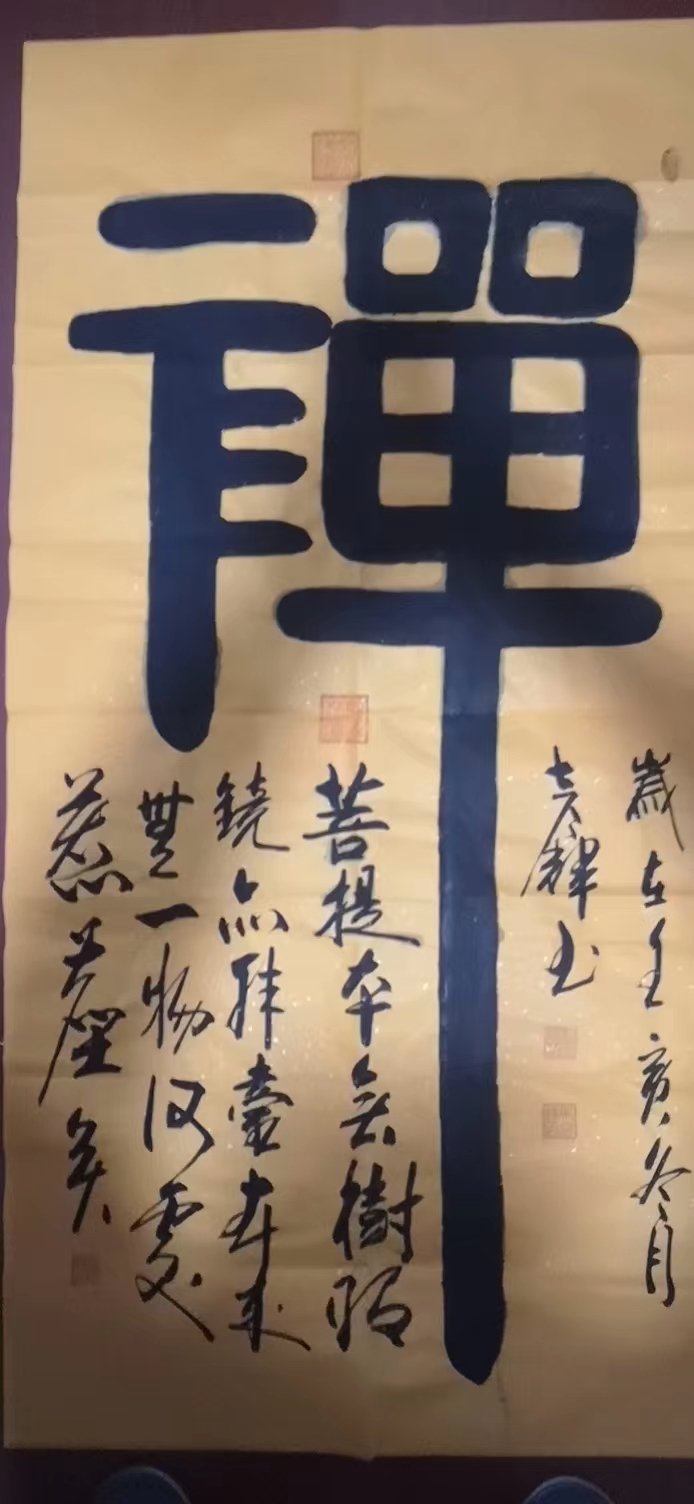 禪
歲在壬寅冬月
书
菩提本无樹明
鏡亦非臺本来
無一物何處
惹塵埃